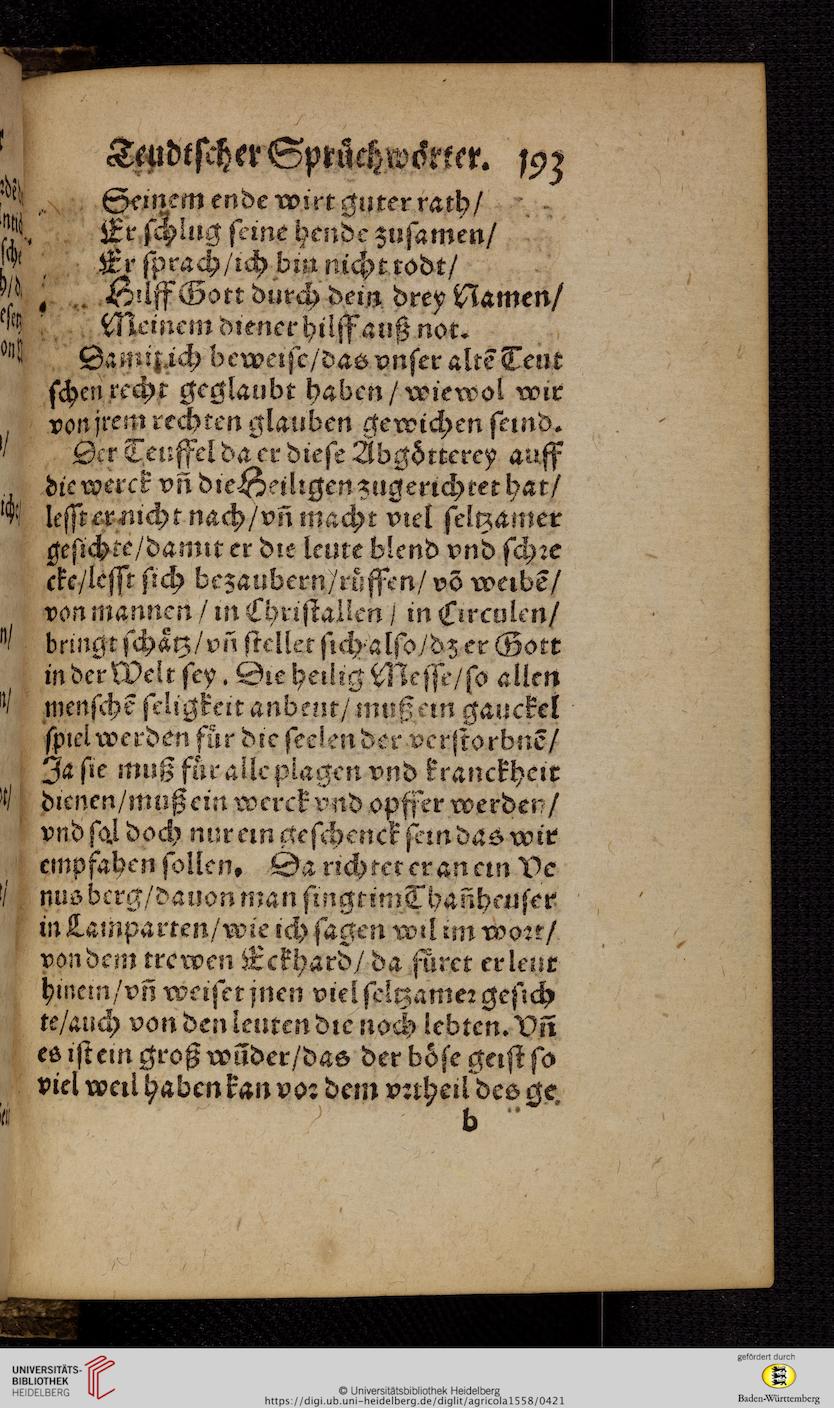 Teudtscher Sprüchwörter. 193
Seinem ende wirt guter rath/
Er schlug seine hende zusamen/
Er sprach/ich bin nicht todt/
Hilff Gott durch dein drey Namen/
Meinem diener hilff auß not.
Damit ich beweise/das vnser altẽ Teut
schen recht geglaubt haben/wiewol wir
von jrem rechten glauben gewichen seind.
Der Teuffel da er diese Abgötterey auff
die werck vñ die Heiligen zugerichtet hat/
lesst er nicht nach/vñ macht viel seltzamer
gesichte/damit er die leute blend vnd schre
cke/lesst sich bezaubern/rüffen/võ weibẽ/
von mannen/in Christallen/in Circulen/
bringt schätz/vñ stellet sich also/dz er Gott
in der Welt sey. Die heilig Messe/so allen
menschẽ seligkeit anbeut/muß ein gauckel
spiel werden für die seelen der verstorbnẽ/
Ja sie muß für alle plagen vnd kranckheit
dienen/muß ein werck vnd opffer werden/
vnd sol doch nur ein geschenck sein das wir
empfahen sollen. Da richtet er an ein Ve
nus berg/dauon man singt im Thañheuser
in Lamparten/wie ich sagen wil im wort/
von dem trewen Eckhard/da füret er leut
hinein/vñ weiset jnen viel seltzamer gesich
te/auch von den leuten die noch lebten. Vñ
es ist ein groß wũder/das der böse geist so
viel weil haben kan vor dem vrtheil des ge
b
UNIVERSITÄTS-
BIBLIOTHEK
HEIDELBERG
© Universitätsbibliothek Heidelberg
https://digi.ub.uni-heidelberg.de/diglit/agricola1558/0421
gefördert durch
Baden-Württemberg